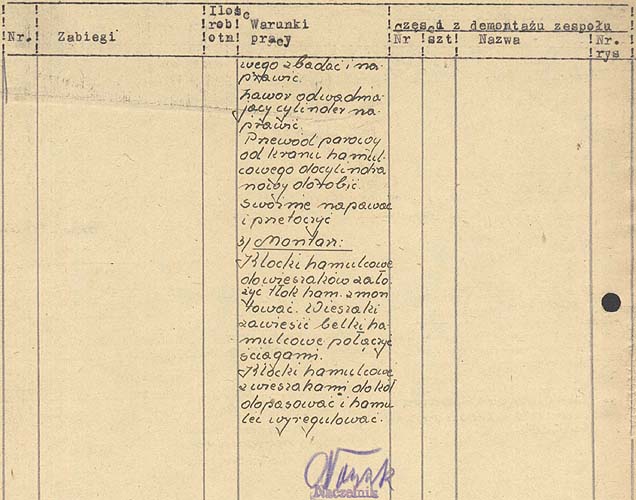 Nr. Zabiegi Ilość rob otn Warunki pracy części z demontażu zespołu
Nr szt Nazwa Nr. rys
wego zbadać i na
prawić.
Zawór odwadnia
jący cylinder na
prawić.
Przewód parowy
od kranu hamul
cowego do cylindra
nowy dorobić.
sworznie napawać
i przetoczyć
3/ Montaż:
Klocki hamulcowe
do wieszaków zało
żyć tłok ham. zmon
tować. Wieszaki
zawiesić belki ha
mulcowe połączyć
ściągami.
Klocki hamulcowe
z wieszakami do kół
dopasować i hamu
lec wyregulować.
Nowak
Naczelnik